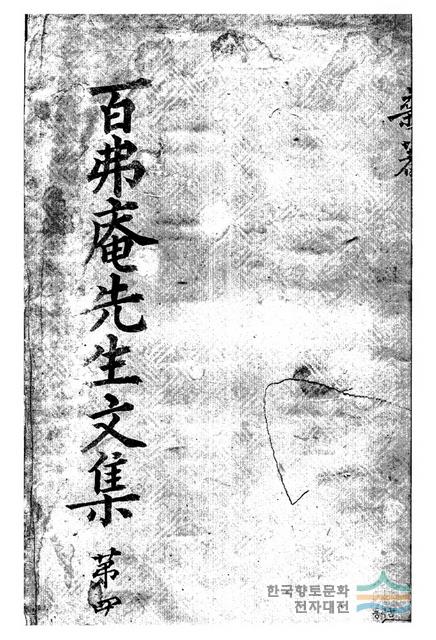 雜著
百弗庵先生文集 第四
한국향토문화
전자대전